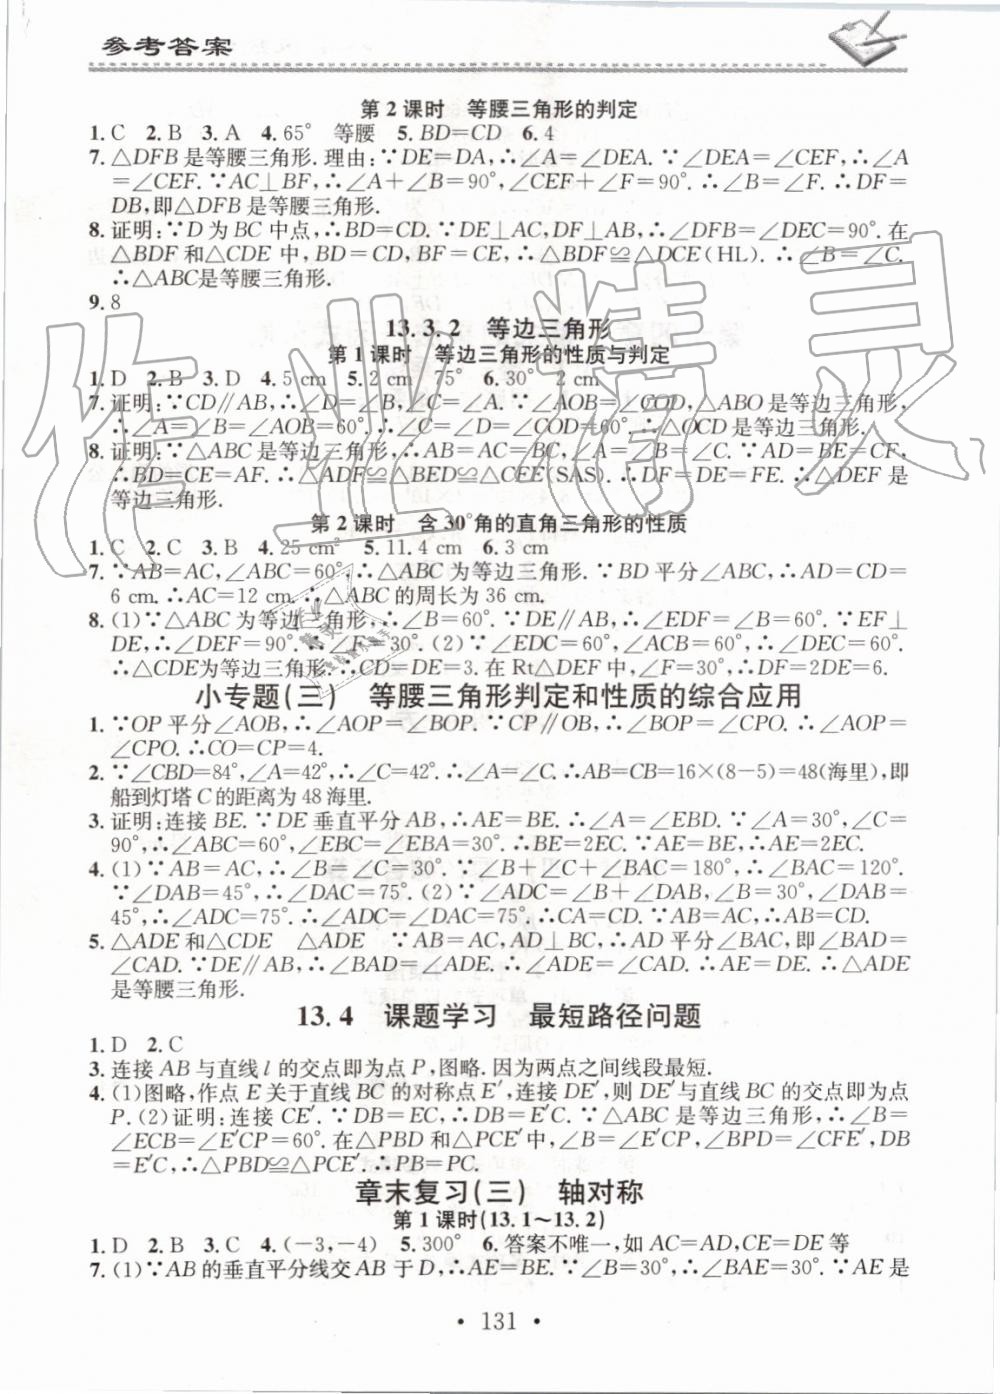 参考答案
第 2 课时　等腰三角形的判定
1. C　2. B　3. A　4. 65°　等腰　5. BD=CD　6. 4
7. △DFB 是等腰三角形. 理由:∵DE=DA,∴∠A=∠DEA. ∵∠DEA=∠CEF,∴∠A
=∠CEF. ∵AC⊥BF,∴∠A+∠B=90°,∠CEF+∠F=90°. ∴∠B=∠F. ∴DF=
DB,即△DFB 是等腰三角形.
8. 证明:∵D 为 BC 中点,∴BD=CD. ∵DE⊥AC,DF⊥AB,∴∠DFB=∠DEC=90°. 在
△BDF 和△CDE 中,BD=CD,BF=CE,∴△BDF≌△DCE(HL). ∴∠B=∠C.
∴△ABC是等腰三角形.
9. 8
13.3.2　等边三角形
第 1 课时　等边三角形的性质与判定
1. D　2. B　3. D　4. 5 cm　5. 2 cm　75°　6. 30°　2 cm
7. 证明:∵CD∥AB,∴∠D=∠B,∠C=∠A. ∵∠AOB=∠COD,△ABO 是等边三角形,
∴∠A=∠B=∠AOB=60°. ∴∠C=∠D=∠COD=60°. ∴△OCD 是等边三角形.
8. 证明:∵△ABC 是等边三角形,∴AB=AC=BC,∠A=∠B=∠C. ∵AD=BE=CF,
∴BD=CE=AF. ∴△ADF≌△BED≌△CFE(SAS). ∴DF=DE=FE. ∴△DEF 是
等边三角形.
第 2 课时　含 30°角的直角三角形的性质
1. C　2. C　3. B　4. 25 cm²　5. 11.4 cm　6. 3 cm
7. ∵AB=AC,∠ABC=60°,∴△ABC 为等边三角形. ∵BD 平分∠ABC,∴AD=CD=
6 cm. ∴AC=12 cm. ∴△ABC 的周长为 36 cm.
8. (1)∵△ABC 为等边三角形,∴∠B=60°. ∵DE∥AB,∴∠EDF=∠B=60°. ∵EF⊥
DE,∴∠DEF=90°. ∴∠F=30°. (2)∵∠EDC=60°,∠ACB=60°,∴∠DEC=60°.
∴△CDE为等边三角形. ∴CD=DE=3. 在 Rt△DEF 中,∠F=30°,∴DF=2DE=6.
小专题(三)　等腰三角形判定和性质的综合应用
1. ∵OP 平分∠AOB,∴∠AOP=∠BOP. ∵CP∥OB,∴∠BOP=∠CPO. ∴∠AOP=
∠CPO. ∴CO=CP=4.
2. ∵∠CBD=84°,∠A=42°,∴∠C=42°. ∴∠A=∠C. ∴AB=CB=16×(8-5)=48(海里),即
船到灯塔 C 的距离为 48 海里.
3. 证明:连接 BE. ∵DE 垂直平分 AB,∴AE=BE. ∴∠A=∠EBD. ∵∠A=30°,∠C=
90°,∴∠ABC=60°,∠EBC=∠EBA=30°. ∴BE=2EC. ∵AE=BE,∴AE=2EC.
4. (1)∵AB=AC,∴∠B=∠C=30°. ∵∠B+∠C+∠BAC=180°,∴∠BAC=120°.
∵∠DAB=45°,∴∠DAC=75°. (2)∵∠ADC=∠B+∠DAB,∠B=30°,∠DAB=
45°,∴∠ADC=75°. ∴∠ADC=∠DAC=75°. ∴CA=CD. ∵AB=AC,∴AB=CD.
5. △ADE 和△CDE　△ADE　∵AB=AC,AD⊥BC,∴AD 平分∠BAC,即∠BAD=
∠CAD. ∵DE∥AB,∴∠BAD=∠ADE. ∴∠ADE=∠CAD. ∴AE=DE. ∴△ADE
是等腰三角形.
13.4　课题学习　最短路径问题
1. D　2. C
3. 连接 AB 与直线 l 的交点即为点 P,图略. 因为两点之间线段最短.
4. (1)图略,作点 E 关于直线 BC 的对称点 E′,连接 DE′,则 DE′与直线 BC 的交点即为点
P. (2)证明:连接 CE′. ∵DB=EC,∴DB=E′C. ∵△ABC 是等边三角形,∴∠B=
∠ECB=∠E′CP=60°. 在△PBD 和△PCE′中,∠B=∠E′CP,∠BPD=∠CFE′,DB
=E′C,∴△PBD≌△PCE′. ∴PB=PC.
章末复习(三)　轴对称
第 1 课时(13.1~13.2)
1. D　2. B　3. C　4. (-3,-4)　5. 300°　6. 答案不唯一,如 AC=AD,CE=DE 等
7. (1)∵AB 的垂直平分线交 AB 于 D,∴AE=BE. ∵∠B=30°,∴∠BAE=30°. ∵AE 是
· 131 ·
作业精灵